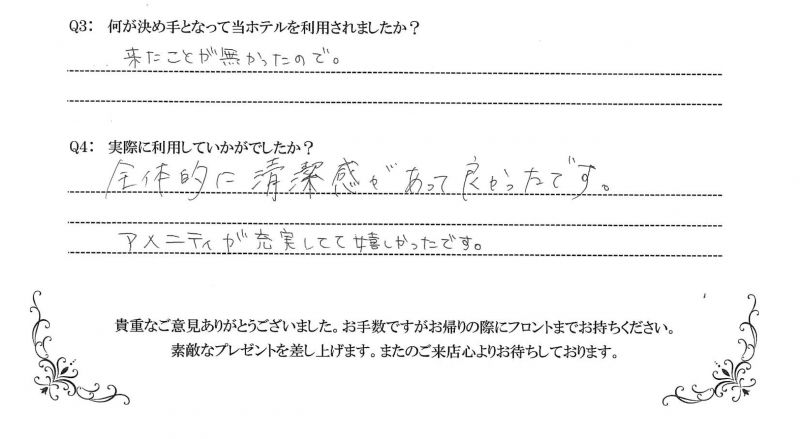 Q3： 何が決め手となって当ホテルを利用されましたか？
来たことが無かったので。
Q4： 実際に利用していかがでしたか？
全体的に清潔感があって良かったです。
アメニティが充実してて嬉しかったです。
貴重なご意見ありがとうございました。お手数ですがお帰りの際にフロントまでお持ちください。
素敵なプレゼントを差し上げます。またのご来店心よりお待ちしております。